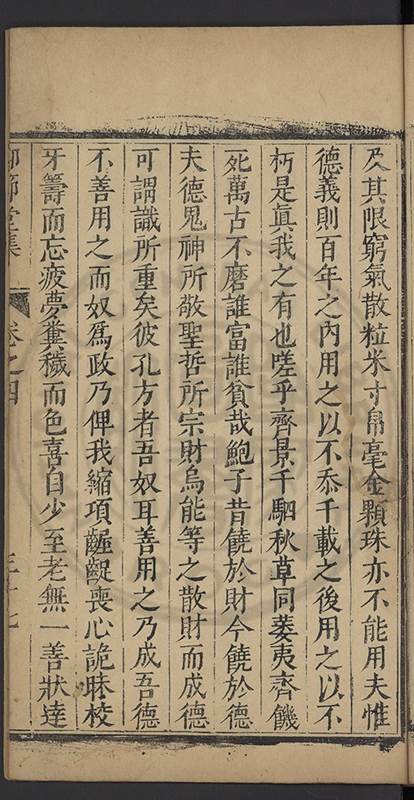 及其限窮氣散粒米寸帛毫金顆珠亦不能用夫惟
德義則百年之內用之以不忝千載之後用之以不
朽是眞我之有也嗟乎齊景千駟秋草同萎夷齊餓
死萬古不磨誰富誰貧哉鮑子昔饒於財今饒於德
夫德鬼神所敬聖哲所宗財烏能等之散財而成德
可謂識所重矣彼孔方者吾奴耳善用之乃成吾德
不善用之而奴爲政乃俾我縮項齷齪喪心詭昧校
牙籌而忘疲夢糞穢而色喜自少至老無一善狀達
節堂集
卷之四